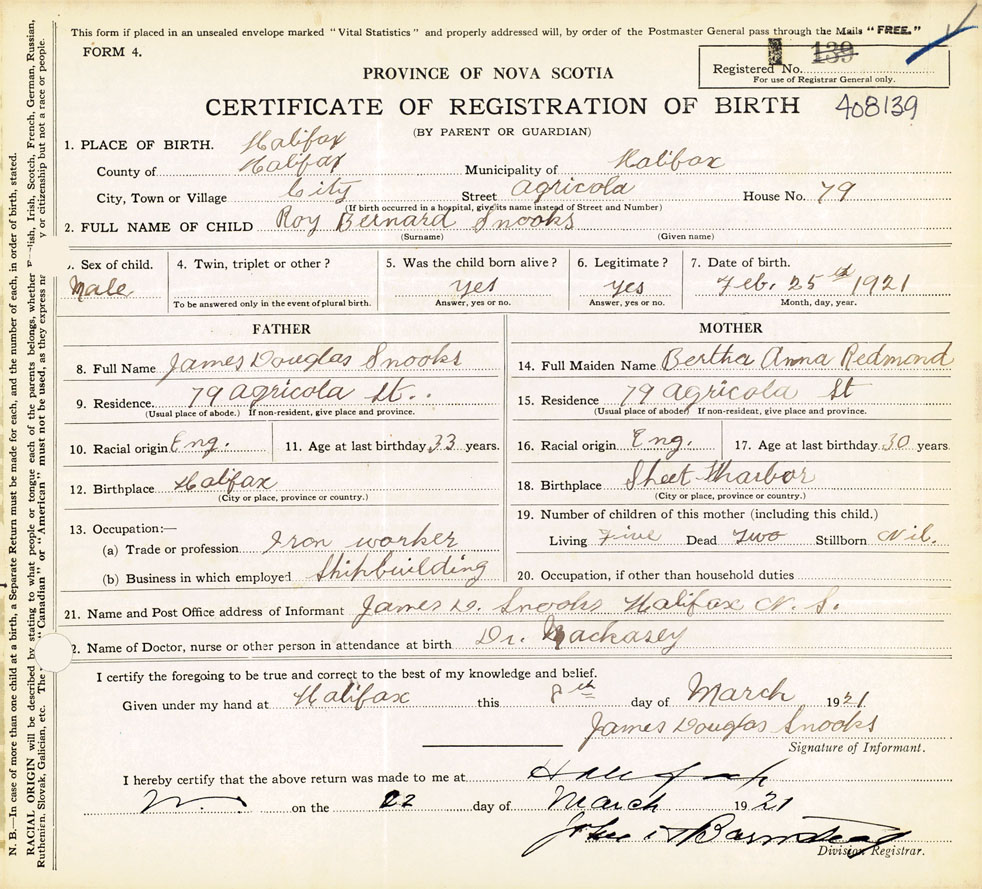 This form if placed in an unsealed envelope marked "Vital Statistics" and properly addressed will, by order of the Postmaster General pass through the Mails "FREE."
FORM 4.
139
Registered No.
For use of Registrar General only.
PROVINCE OF NOVA SCOTIA
CERTIFICATE OF REGISTRATION OF BIRTH 408139
(BY PARENT OR GUARDIAN)
1. PLACE OF BIRTH. Halifax
County of Halifax Municipality of Halifax
City, Town or Village City Street Agricola House No. 79
(If birth occurred in a hospital, give its name instead of Street and Number)
2. FULL NAME OF CHILD Roy Bernard Snooks
(Surname) (Given name)
3. Sex of child. 4. Twin, triplet or other? 5. Was the child born alive? 6. Legitimate? 7. Date of birth.
Male yes yes Feb. 25th 1921
To be answered only in the event of plural birth. Answer, yes or no. Answer, yes or no. Month, day, year.
FATHER MOTHER
8. Full Name James Douglas Snooks 14. Full Maiden Name Bertha Anna Redmond
9. Residence. 79 Agricola St. 15. Residence 79 Agricola St
(Usual place of abode.) If non-resident, give place and province. (Usual place of abode) If non-resident, give place and province.
10. Racial origin Eng. 11. Age at last birthday 33 years. 16. Racial origin Eng. 17. Age at last birthday 30 years.
12. Birthplace Halifax 18. Birthplace Sheet Harbor
(City or place, province or country.) (City or place, province or country.)
13. Occupation:— 19. Number of children of this mother (including this child.)
(a) Trade or profession Iron worker Living Five Dead Two Stillborn Nil.
(b) Business in which employed Shipbuilding 20. Occupation, if other than household duties
21. Name and Post Office address of Informant James D. Snooks Halifax N. S.
2. Name of Doctor, nurse or other person in attendance at birth Dr. Mackasey
I certify the foregoing to be true and correct to the best of my knowledge and belief.
Given under my hand at Halifax this 8th day of March 1921
James Douglas Snooks
Signature of Informant.
I hereby certify that the above return was made to me at Halifax
on the 22 day of March 1921
John Barnstead
Division Registrar.
N. B.—In case of more than one child at a birth, a Separate Return must be made for each, and the number of each, in order of birth, stated.
RACIAL ORIGIN will be described by stating to what people or tongue each of the parents belongs, whether English, Irish, Scotch, French, German, Russian,
Ruthenian, Slovak, Galician, etc. The "Canadian" or "American" must not be used, as they express y or citizenship but not a race or people.